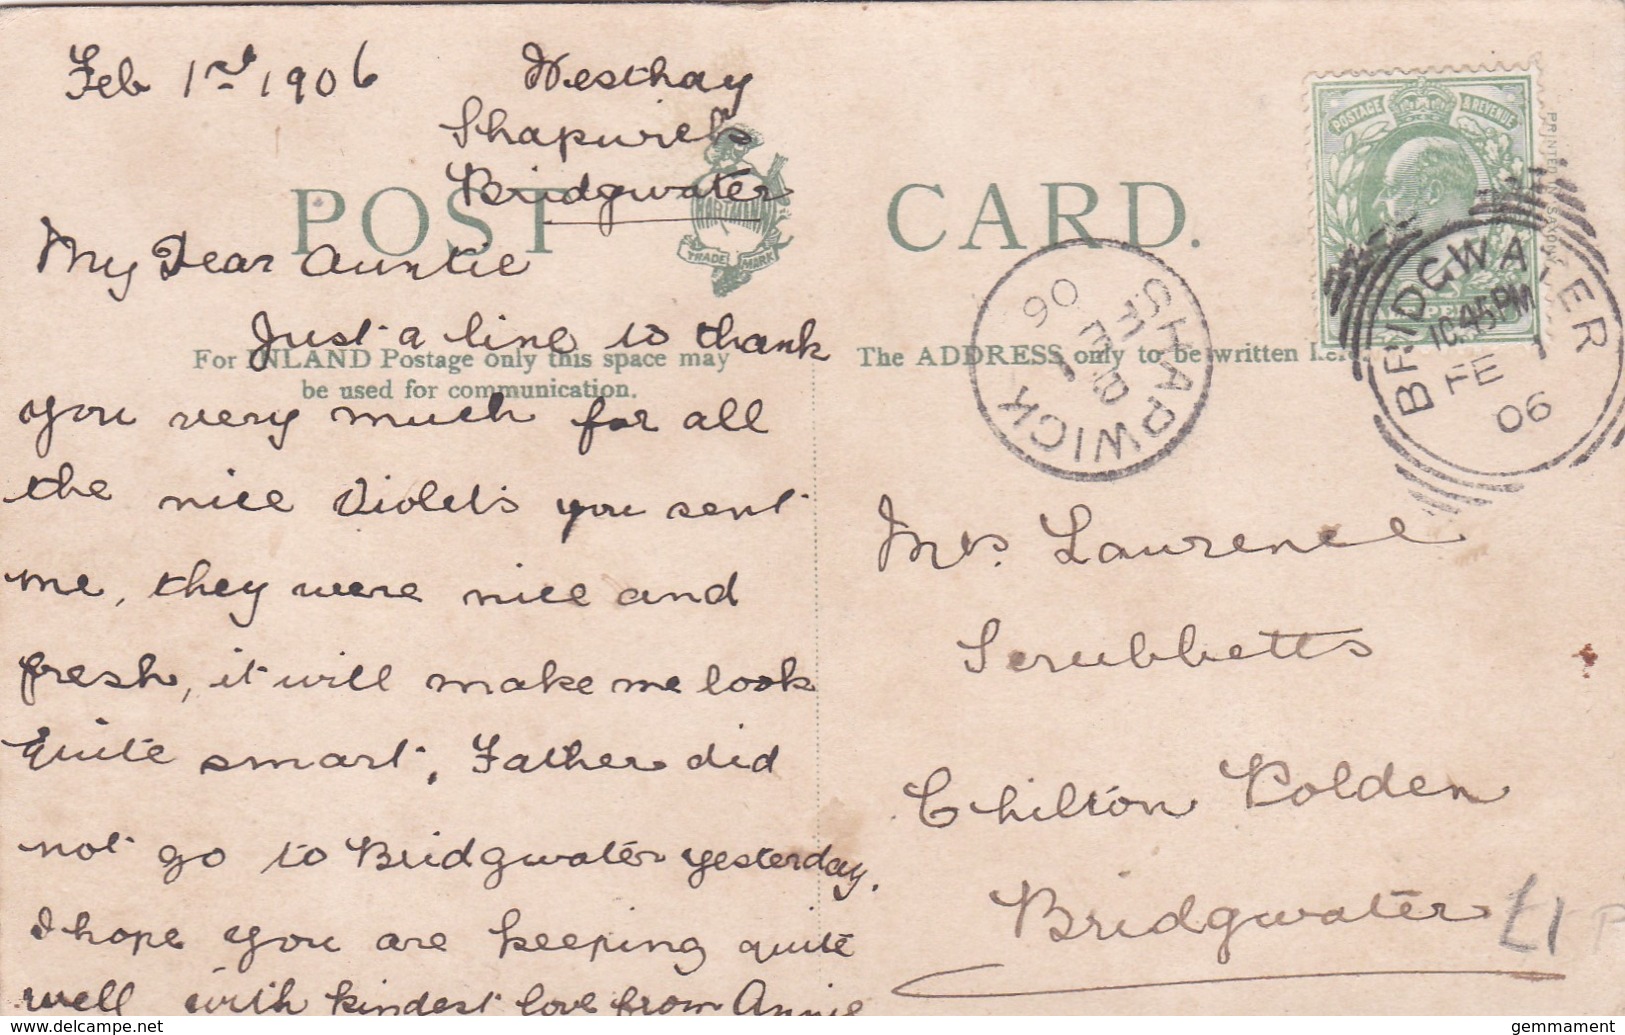 Feb 1st 1906
Westhay
Shapwick
Bridgwater
POST CARD.
HARTMANN
TRADE MARK
For INLAND Postage only this space may
be used for communication.
The ADDRESS only to be written here.
My Dear Auntie
Just a line to thank
you very much for all
the nice Violets you sent
me, they were nice and
fresh, it will make me look
quite smart, Father did
not go to Bridgwater yesterday.
I hope you are keeping quite
well with kindest love from Annie
POSTAGE & REVENUE
SHAPWICK
FE 1
06
BRIDGWATER
10.45PM
FE 1
06
Mrs. Laurence
Scrubbetts
Chilton Polden
Bridgwater
£1
delcampe.net
gemmament